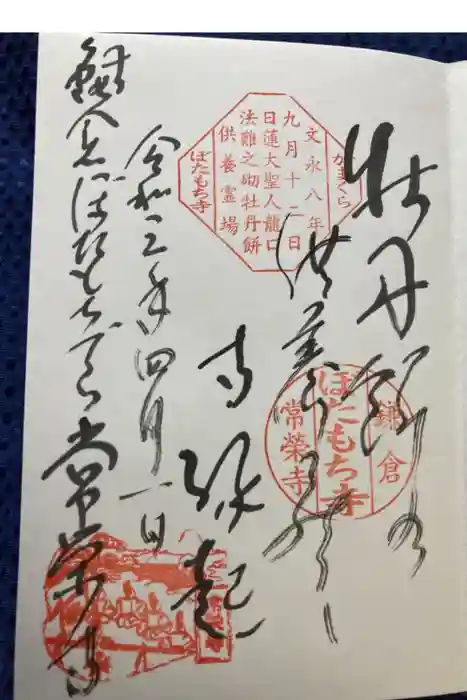 かまくら
文永八年
九月十二日
日蓮大聖人龍口
法難之砌牡丹餅
供養霊場
ぼたもち寺
牡丹餅
供養
寺縁起
鎌倉
ぼたもち寺
常榮寺
令和三年四月一日
鎌倉ぼたもちでら常栄寺